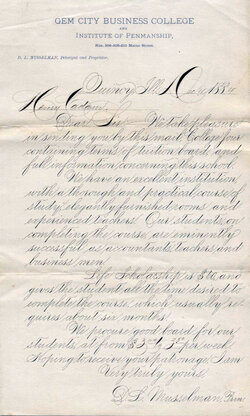 GEM CITY BUSINESS COLLEGE
AND
INSTITUTE OF PENMANSHIP,
Maine Street.
D. L. MUSSELMAN, Principal and Proprietor.
Quincy, Ill.
Henry
Dear Sir: We take pleasure
in sending you by this mail College
containing terms of tuition board, and
full information concerning this school.
We have an excellent institution
with a thorough and practical course of
study, elegantly furnished rooms and
experienced teachers. Our students, on
completing the course, are eminently
successful as accountants, teachers and
business men.
Life Scholarship is and
gives the student all the time desired to
complete the course, which usually re-
quires about six months.
We procure good board for our
students, at from per week.
Hoping to receive your patronage, I am
Very truly yours,
D. L. Musselman, Prin.